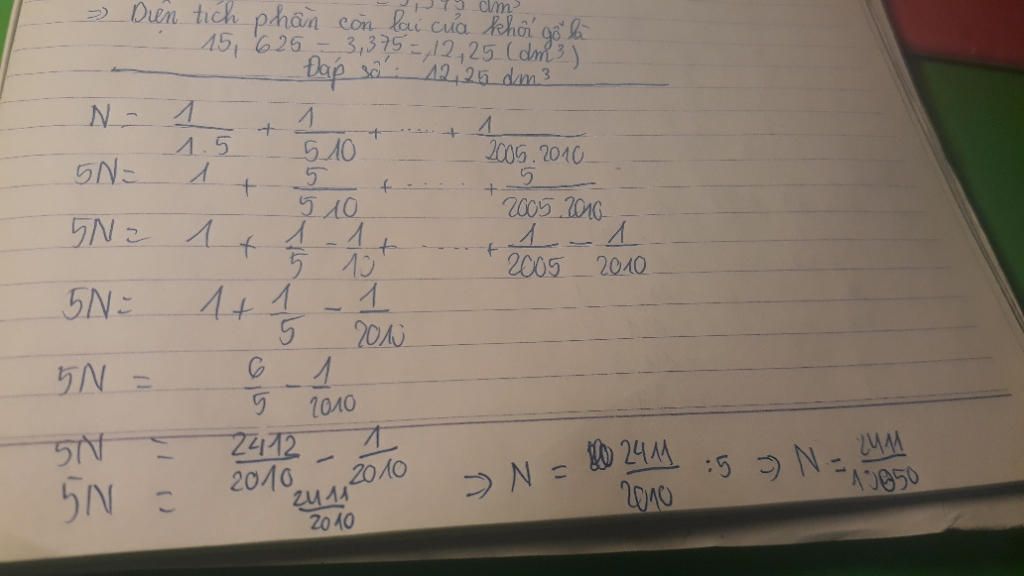 = 3,375 dm³
⇒ Diện tích phần còn lại của khối gỗ là
15,625 - 3,375 = 12,25 (dm³)
Đáp số: 12,25 dm³
N = 1/1.5 + 1/5.10 + ..... + 1/2005.2010
5N = 1 + 5/5.10 + ...... + 5/2005.2010
5N = 1 + 1/5 - 1/10 + ...... + 1/2005 - 1/2010
5N = 1 + 1/5 - 1/2010
5N = 6/5 - 1/2010
5N = 2412/2010 - 1/2010
5N = 2411/2010 ⇒ N = 2411/2010 :5 ⇒ N = 2411/10050